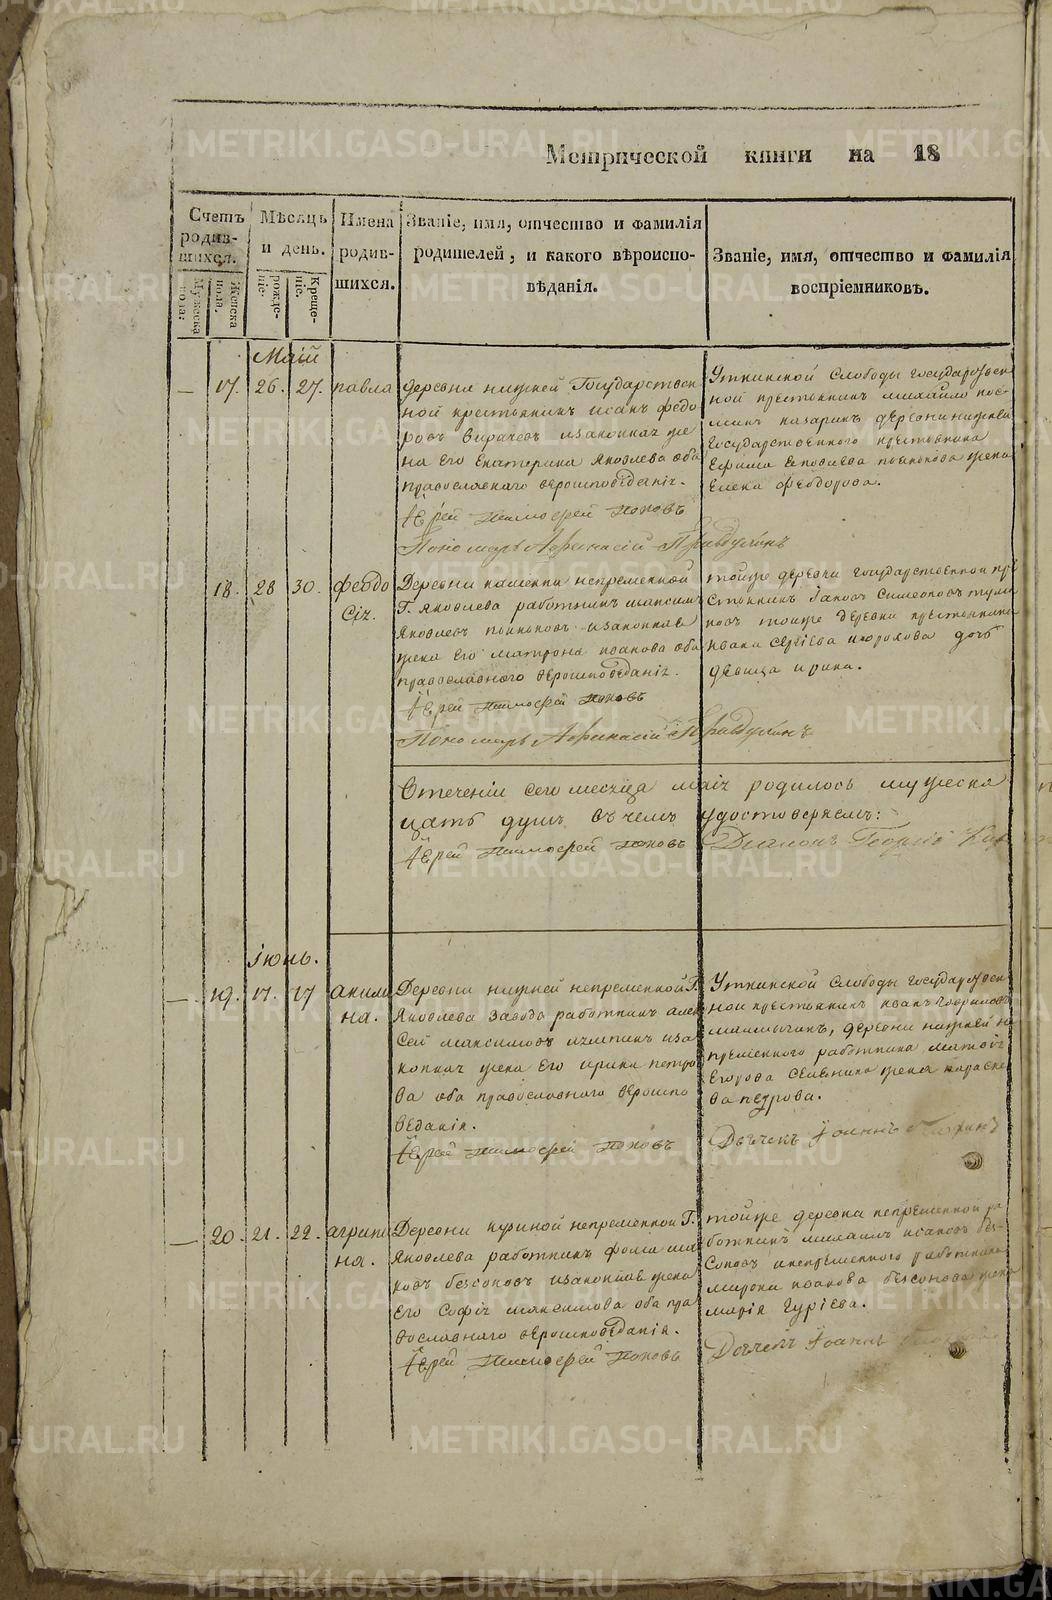 Метрической книги на 18
Счетъ родив-шихся.
Мужеска пола:
Женска пола.
Мѣсяцъ и день.
рожде-ніе:
Креще-ніе.
Имена родив-шихся.
Званіе, имя, отчество и фамилія
родителей, и какого вѣроиспо-
вѣданія.
Званіе, имя, отчество и фамилія
воспріемниковъ.
Маій
— 17. 26. 27. павла
деревни нижней Государствен
ной крестьянинъ исакъ федо
ровъ изаконная же
на его Екатерина Яковлева оба
православнаго вѣроисповѣданія.
Іерей Тимофей Поповъ
Пономарь Афанасій Правдухинъ
Уткинской Слободы государствен
ной крестьянинъ михайло
деревни нижней
государственного крестьянина
Ефима жена
Елена Феодорова.
18. 28 30. феодо
сія.
Деревни каменки непременной
Г. Яковлева работникъ максимъ
Яковлевъ изаконная
жена его матрона иванова оба
православного вѣроисповѣданія.
Іерей Тимофей Поповъ
Пономарь Афанасій Правдухинъ
тойже деревни государственной кре
стьянинъ Іаковъ Симеоновъ
тойже деревни крестьянина
ивана Сергіева дочь
девица ирина.
Втеченіи сего месяца маія родилось мужеска
цать душъ въ чемъ удостоверяемъ:
Іерей Тимофей Поповъ Діаконъ Георгій
Іюнь.
— 19. 17. 17 акили
на.
Деревни нижней непременной Г.
Яковлева завода работникъ алек
сей максимовъ иза
конная жена его ирина петро
ва оба православного вероиспо
веданія.
Іерей Тимофей Поповъ
Уткинской Слободы государствен
ной крестьянинъ иванъ гавриловъ
деревни нижней не
пременного работника
Егорова жена параске
ва петрова.
Дьячекъ Іоаннъ
— 20. 21. 22. агрипи
на.
Деревни кузиной непременной Г.
Яковлева работникъ фома
бессоновъ изаконная жена
его Софія максимова оба пра
вославнаго вѣроисповѣданія.
Іерей Тимофей Поповъ
тойже деревни непременной ра
ботникъ исаковъ бес-
соновъ инепременного работника
мирона иванова бессонова жена
марія Гуріева.
Дьячекъ Іоаннъ
METRIKI.GASO-URAL.RU